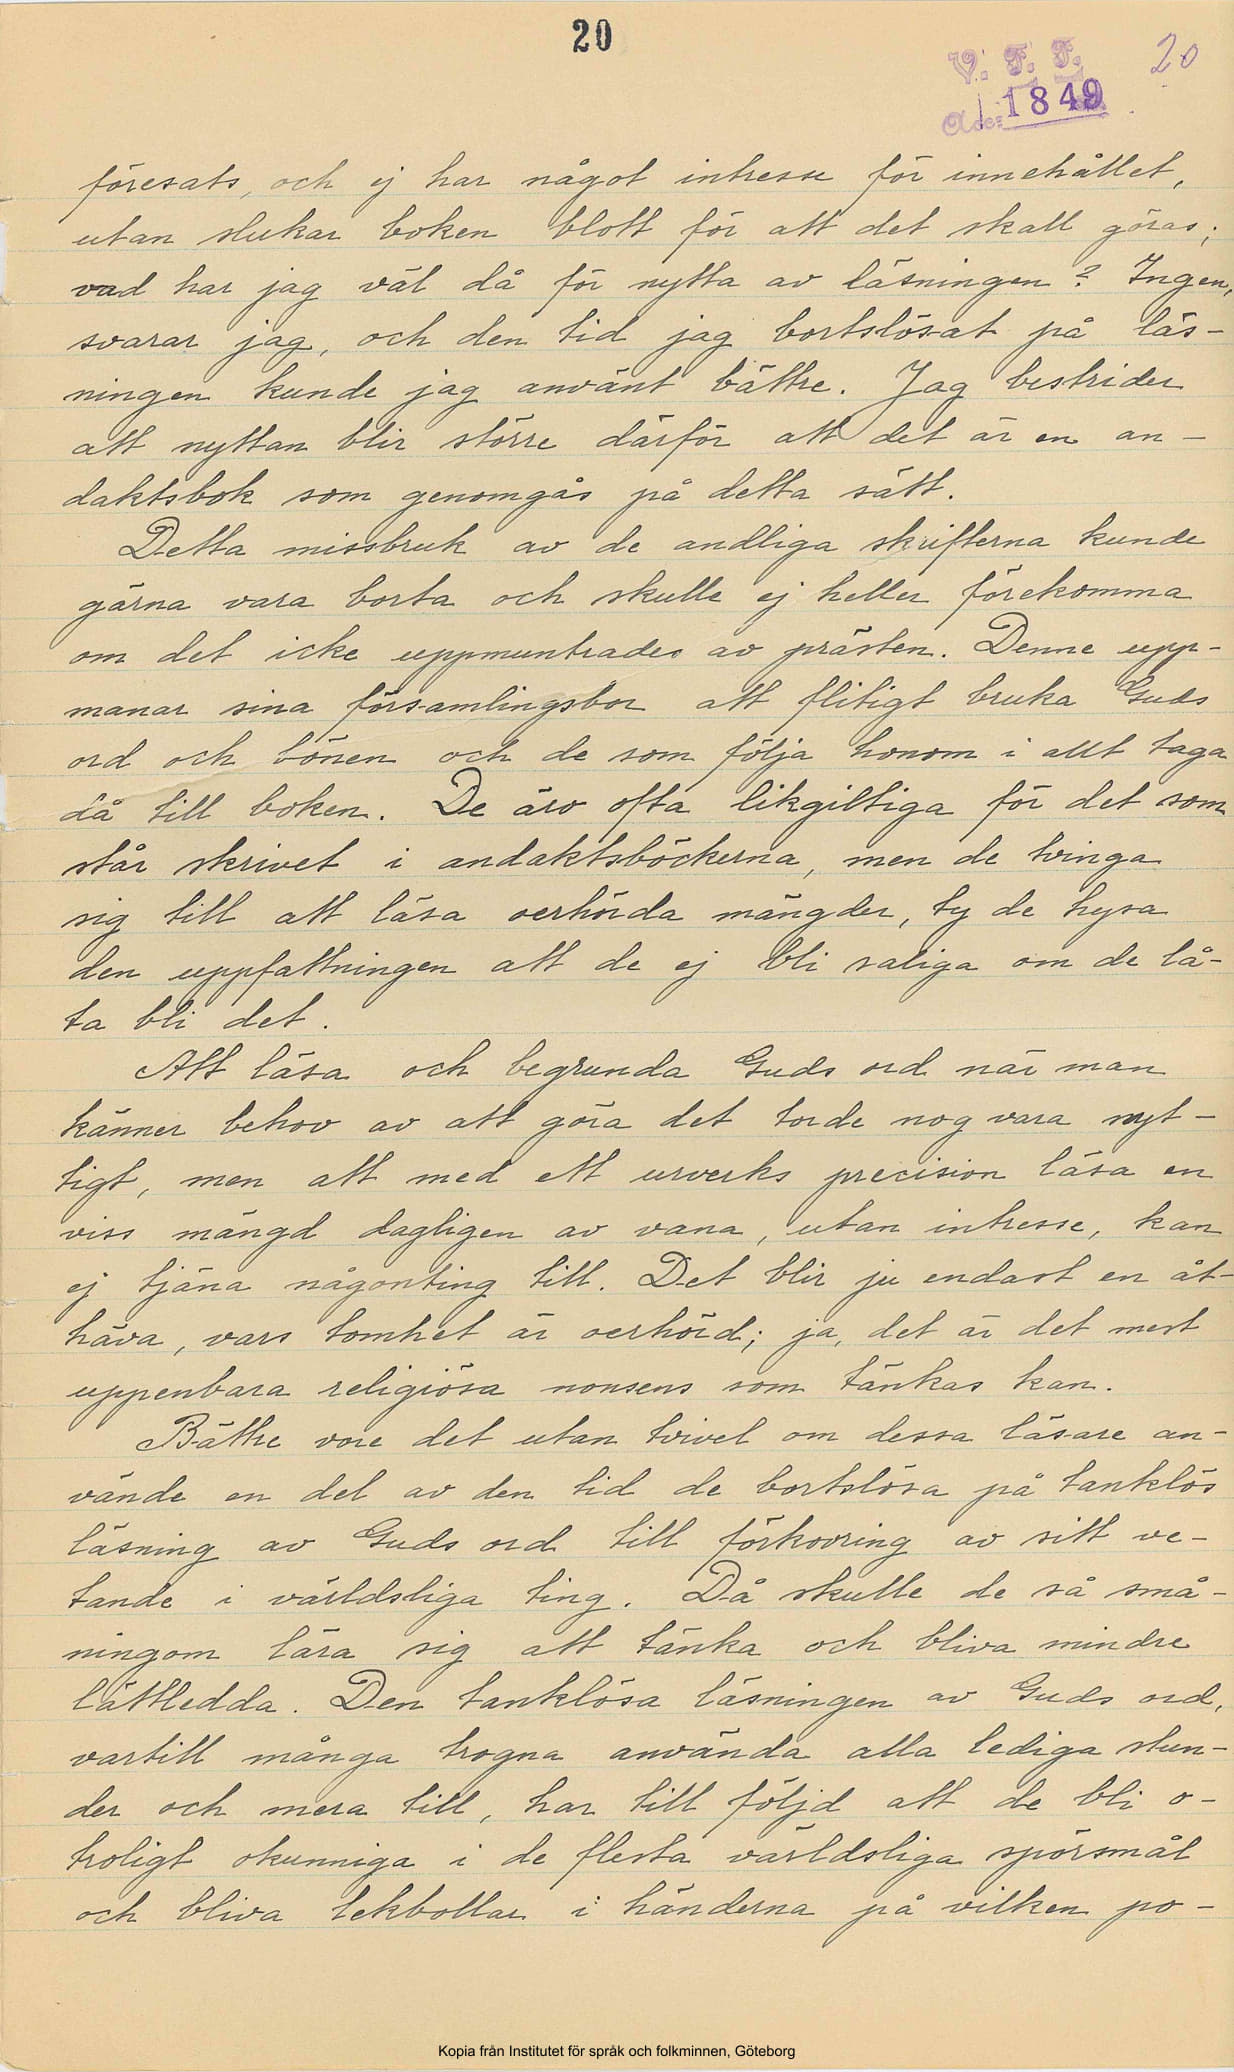 20
V. F. F.
20
Acc: 1849
föresats, och ej har något intresse för innehållet,
utan slukar boken blott för att det skall göras;
vad har jag väl då för nytta av läsningen? Ingen,
svarar jag, och den tid jag bortslösat på läs-
ningen kunde jag använt bättre. Jag bestrider
att nyttan blir större därför att det är en an-
daktsbok som genomgås på detta sätt.
Detta missbruk av de andliga skrifterna kunde
gärna vara borta och skulle ej heller förekomma
om det icke uppmuntrades av prästen. Denne upp-
manar sina församlingsbor att flitigt bruka Guds
ord och bönen och de som följa honom i allt taga
då till boken. De äro ofta likgiltiga för det som
står skrivet i andaktsböckerna, men de tvinga
sig till att läsa oerhörda mängder, ty de hysa
den uppfattningen att de ej bli saliga om de lå-
ta bli det.
Att läsa och begrunda Guds ord när man
känner behov av att göra det torde nog vara nyt-
tigt, men att med ett urverks precision läsa en
viss mängd dagligen av vana, utan intresse, kan
ej tjäna någonting till. Det blir ju endast en åt-
häva, vars tomhet är oerhörd; ja, det är det mest
uppenbara religiösa nonsens som tänkas kan.
Bättre vore det utan tvivel om dessa läsare an-
vände en del av den tid de bortslösa på tanklös
läsning av Guds ord till förkovring av sitt ve-
tande i världsliga ting. Då skulle de så små-
ningom lära sig att tänka och bliva mindre
lättledda. Den tanklösa läsningen av Guds ord,
vartill många trogna använda alla lediga stun-
der och mera till, har till följd att de bli o-
troligt okunniga i de flesta världsliga spörsmål
och bliva lekbollar i händerna på vilken po-
Kopia från Institutet för språk och folkminnen, Göteborg